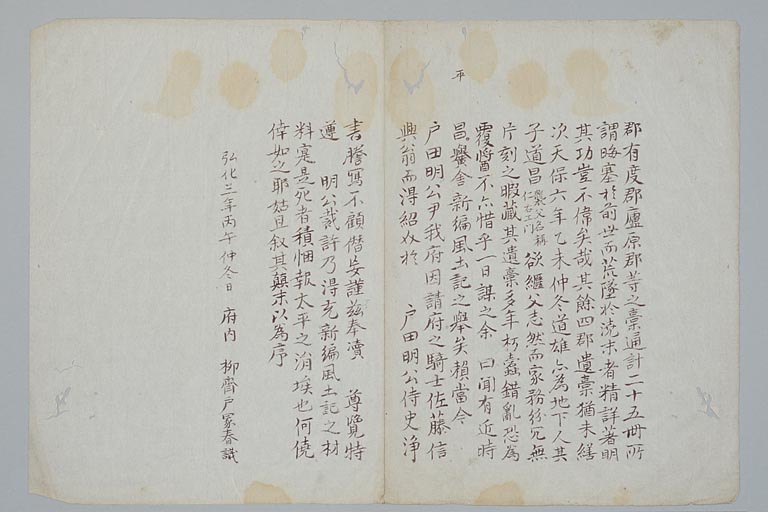 平
郡有度郡廬原郡等之稾通計二十五冊所
謂晦塞於前世而荒墜於澆末者精詳著明
其功豈不偉矣哉其餘四郡遺稾猶未繕
次天保六年乙未仲冬道雄亦為地下人其
子道昌襲父名称仁右エ門欲継父志然而家務紛冗無
片刻之暇藏其遺稾多年朽蠧錯亂恐為
覆醬不亦惜乎一日謀之余曰聞有近時
昌黌舎新編風土記之舉矣賴當今
戸田明公尹我府因請府之騎士佐藤信
興翁而得紹於 戸田明公侍史浄
書謄寫不顧僭妄謹茲奉瀆 尊覽特
遵 明公裁許乃得充新編風土記之材
料寔是死者積悃報太平之涓埃也何僥
倖如之耶姑且叙其顛末以為序
弘化三年丙午仲冬日 府内 柳齋戸冢春識